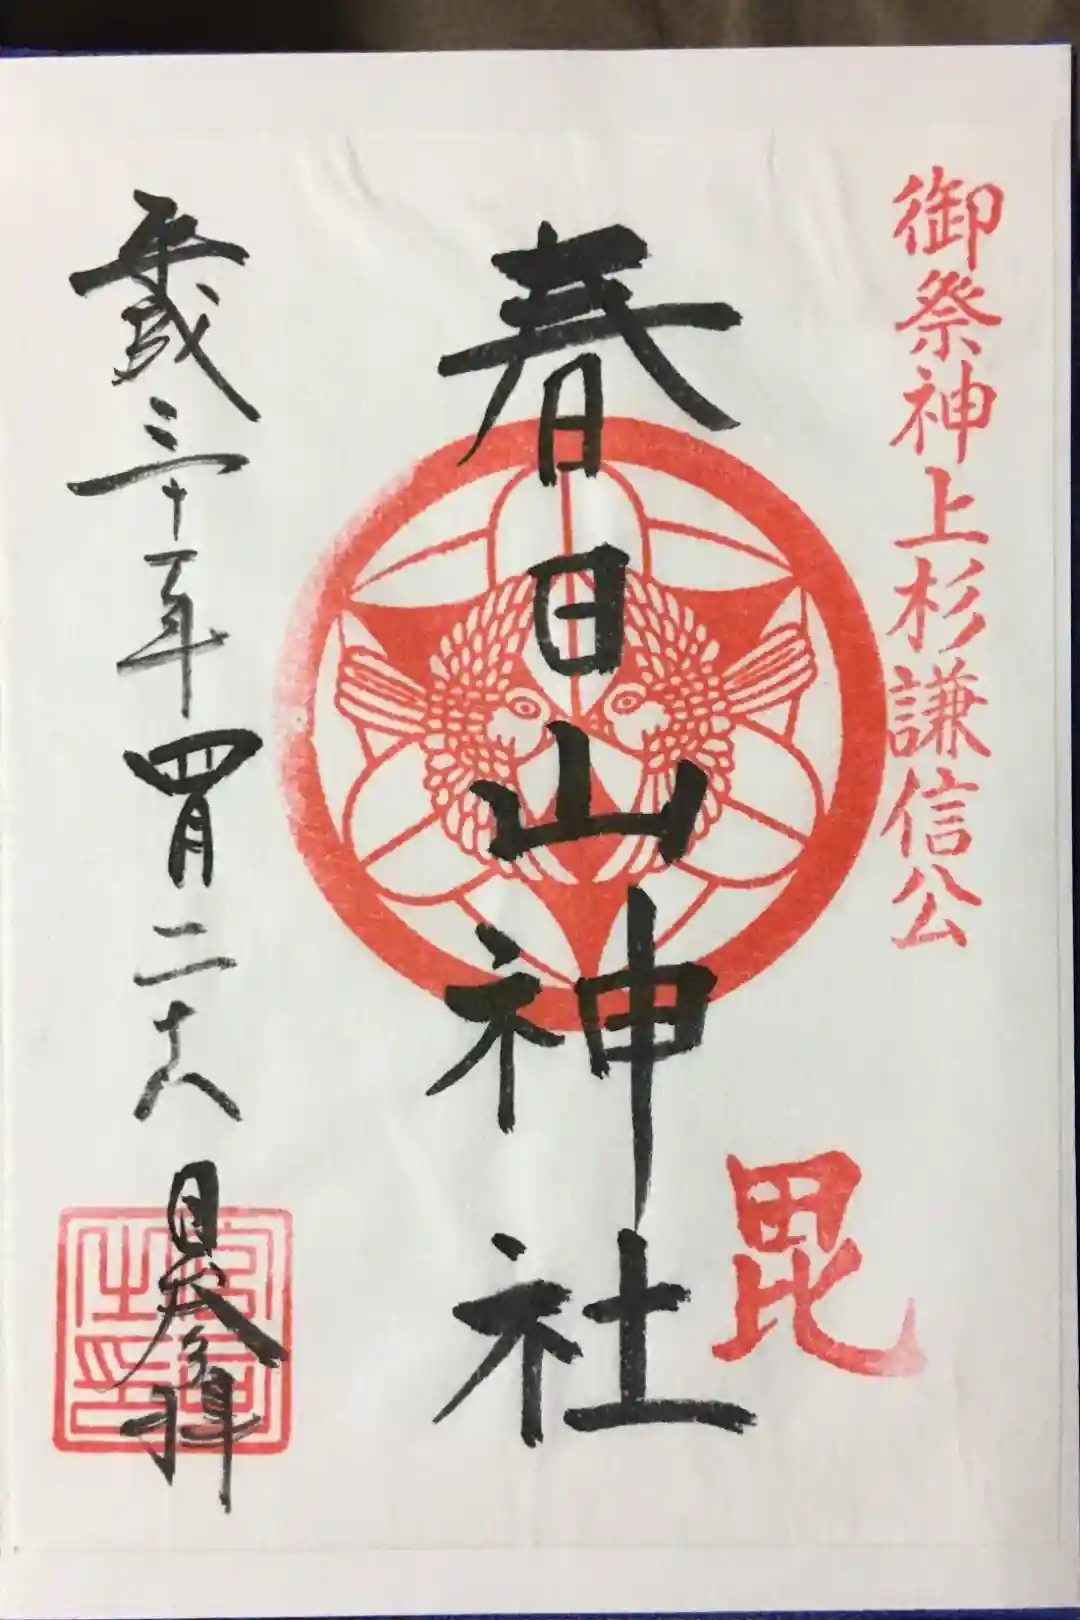 御祭神上杉謙信公
毘
春日山神社
平成三十年四月二十八日参拝
宮司之印